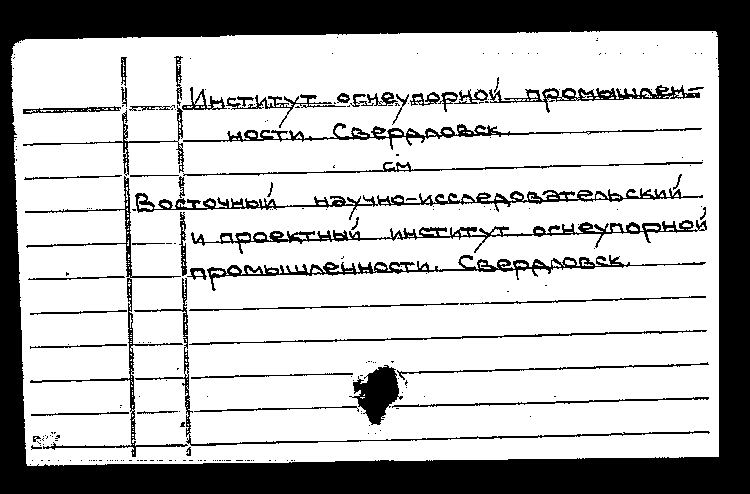 Институт огнеупорной промышлен-
ности. Свердловск.
см
Восточный научно-исследовательский
и проектный институт огнеупорной
промышленности. Свердловск.